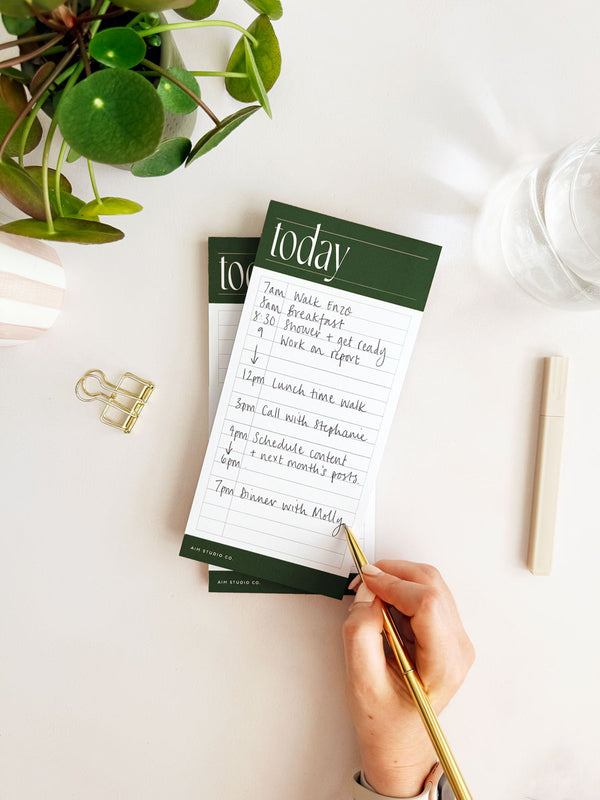 today
7am Walk Enzo
8am Breakfast
8:30 Shower + get ready
9 Work on report
↓
12pm Lunch time Walk
3pm Call with Stephanie
4pm Schedule content
↓ + next month's posts.
6pm
7pm Dinner with Molly
AIM STUDIO CO.
to
AIM STUDIO CO.